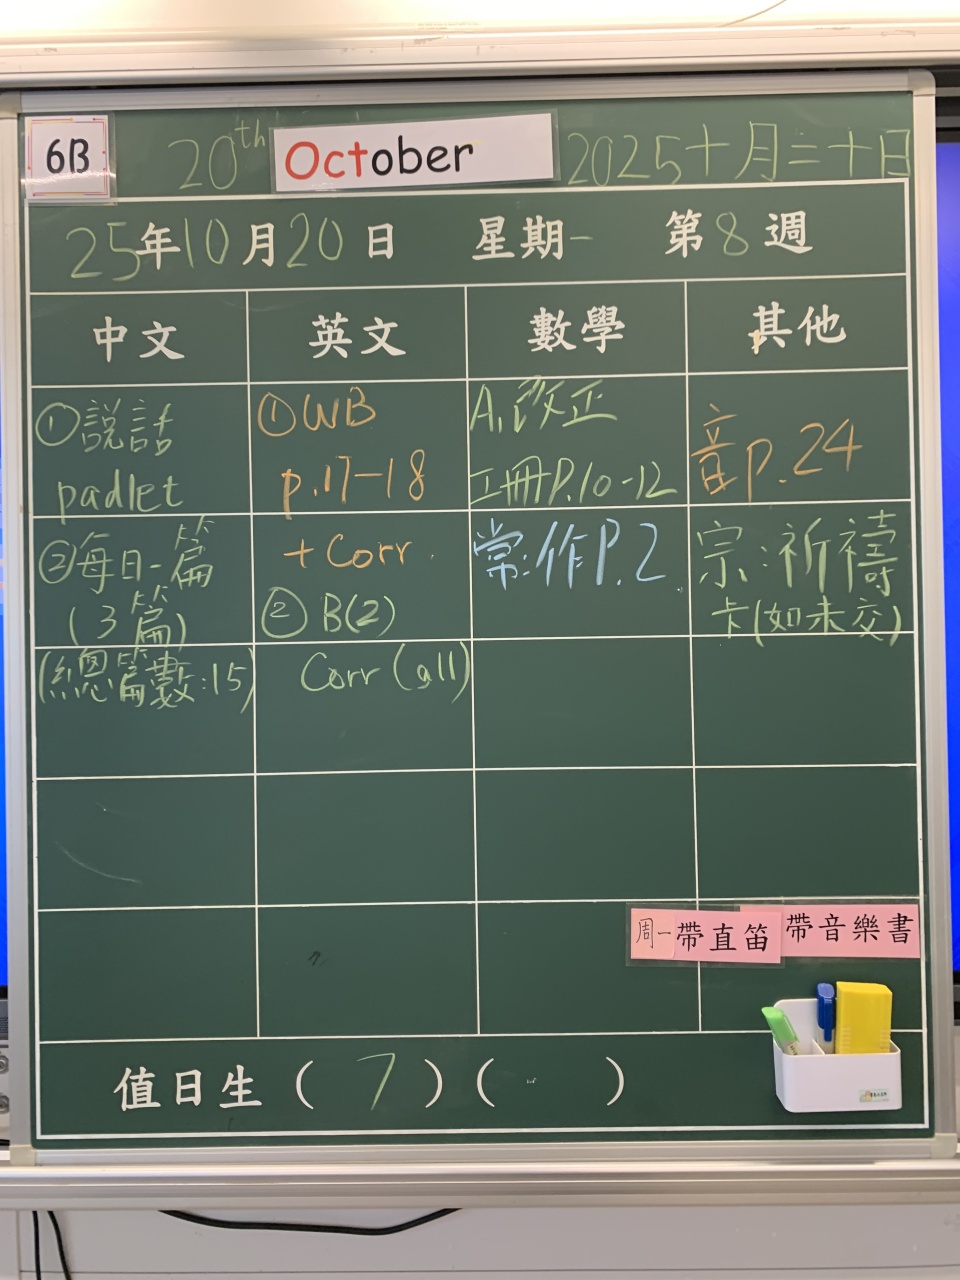 6B
20th October 2025十月二十日
25年10月20日 星期一 第8週
中文 英文 數學 其他
①說話
padlet
②每日一篇
(3篇)
(總篇數:15)
①WB
p.17-18
+Corr.
②B(2)
Corr(all)
A.改正
工冊P.10-12
常:作P.2
音p.24
宗:祈禱
卡(如未交)
周一帶直笛
帶音樂書
值日生(7)( )